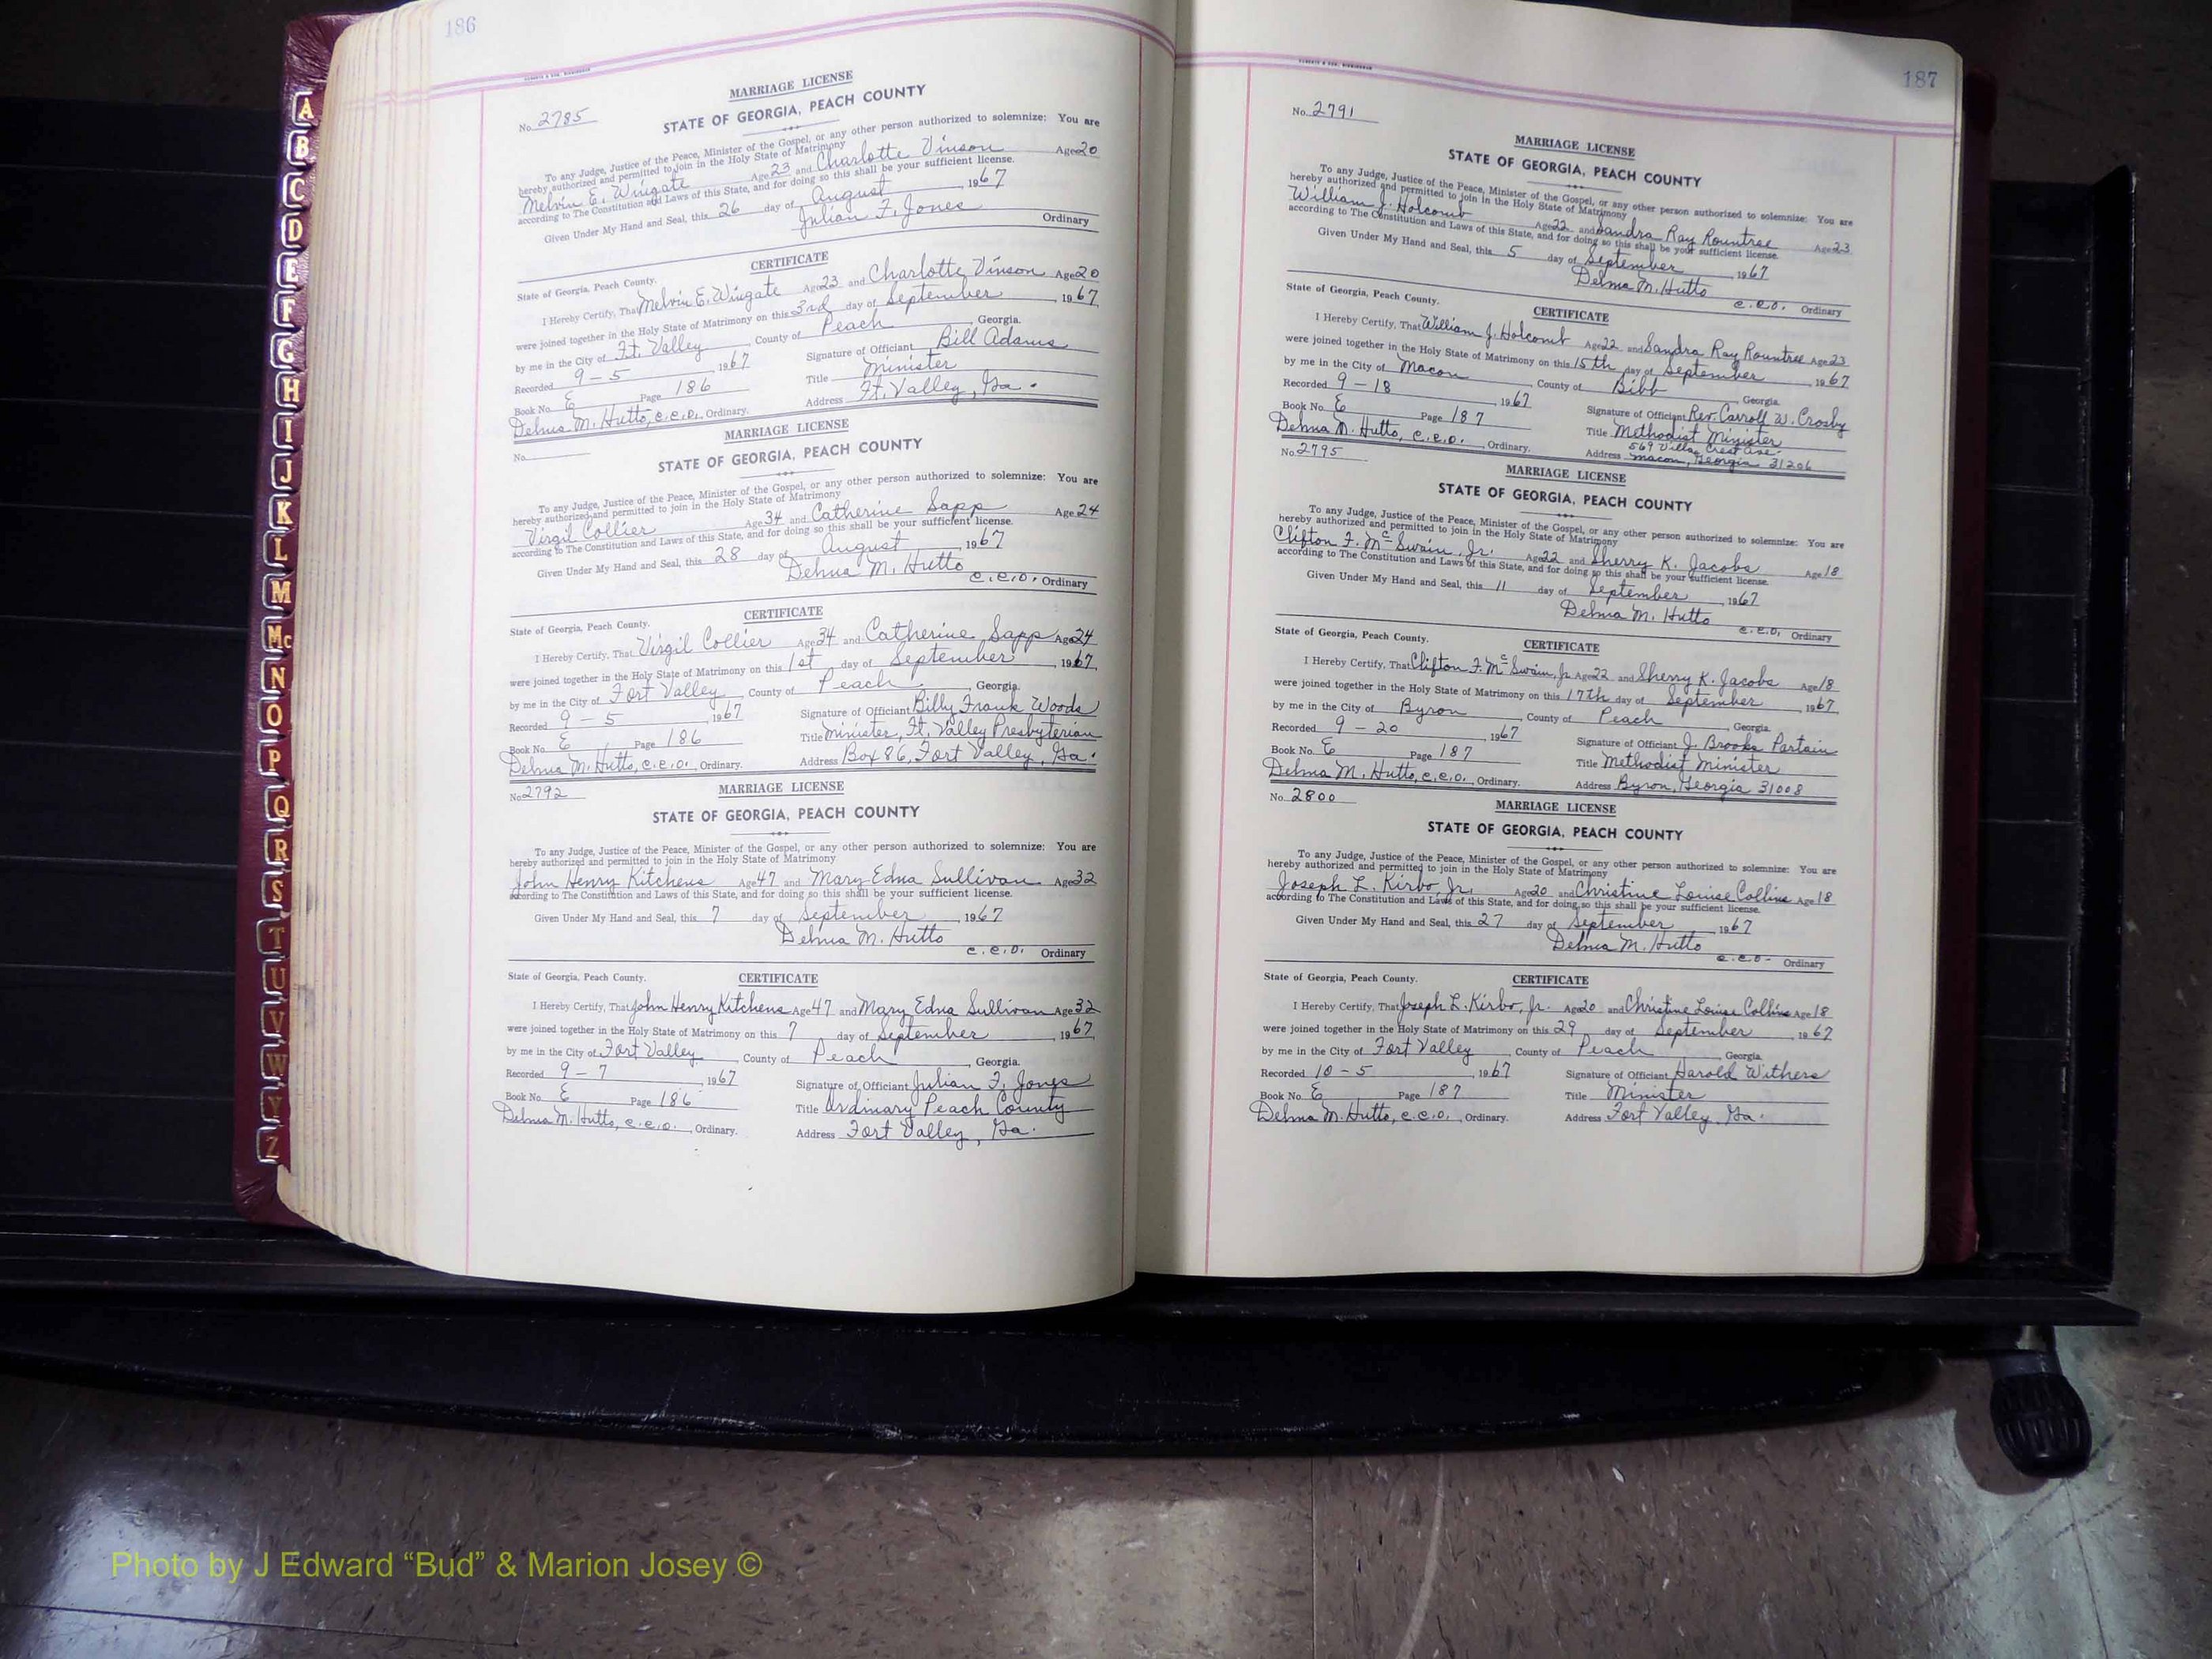 186
MARRIAGE LICENSE
No. 2785
STATE OF GEORGIA, PEACH COUNTY
To any Judge, Justice of the Peace, Minister of the Gospel, or any other person authorized to solemnize: You are
hereby authorized and permitted to join in the Holy State of Matrimony
Melvin E. Wingate Age 23 and Charlotte Vinson Age 20
according to The Constitution and Laws of this State, and for doing so this shall be your sufficient license.
Given Under My Hand and Seal, this 26 day of August, 1967
Julian F. Jones Ordinary
CERTIFICATE
State of Georgia, Peach County.
I Hereby Certify, That Melvin E. Wingate Age 23 and Charlotte Vinson Age 20
were joined together in the Holy State of Matrimony on this 3rd day of September, 1967,
by me in the City of Ft. Valley, County of Peach, Georgia.
Recorded 9-5, 1967 Signature of Officiant Bill Adams
Book No. E Page 186 Title Minister
Delma M. Hutto, C.C.O., Ordinary. Address Ft. Valley, Ga.
MARRIAGE LICENSE
No.
STATE OF GEORGIA, PEACH COUNTY
To any Judge, Justice of the Peace, Minister of the Gospel, or any other person authorized to solemnize: You are
hereby authorized and permitted to join in the Holy State of Matrimony
Virgil Collier Age 34 and Catherine Sapp Age 24
according to The Constitution and Laws of this State, and for doing so this shall be your sufficient license.
Given Under My Hand and Seal, this 28 day of August, 1967
Delma M. Hutto C.C.O. Ordinary
CERTIFICATE
State of Georgia, Peach County.
I Hereby Certify, That Virgil Collier Age 34 and Catherine Sapp Age 24
were joined together in the Holy State of Matrimony on this 1st day of September, 1967,
by me in the City of Fort Valley, County of Peach, Georgia.
Recorded 9-5, 1967 Signature of Officiant Billy Frank Woods
Book No. E Page 186 Title Minister, Ft. Valley Presbyterian
Delma M. Hutto, C.C.O., Ordinary. Address Box 86, Fort Valley, Ga.
No. 2792 MARRIAGE LICENSE
STATE OF GEORGIA, PEACH COUNTY
To any Judge, Justice of the Peace, Minister of the Gospel, or any other person authorized to solemnize: You are
hereby authorized and permitted to join in the Holy State of Matrimony
John Henry Kitchens Age 47 and Mary Edna Sullivan Age 32
according to The Constitution and Laws of this State, and for doing so this shall be your sufficient license.
Given Under My Hand and Seal, this 7 day of September, 1967
Delma M. Hutto
C.C.O. Ordinary
State of Georgia, Peach County. CERTIFICATE
I Hereby Certify, That John Henry Kitchens Age 47 and Mary Edna Sullivan Age 32
were joined together in the Holy State of Matrimony on this 7 day of September, 1967,
by me in the City of Fort Valley, County of Peach, Georgia.
Recorded 9-7, 1967 Signature of Officiant Julian F. Jones
Book No. E Page 186 Title Ordinary Peach County
Delma M. Hutto, C.C.O., Ordinary. Address Fort Valley, Ga.
187
No. 2791
MARRIAGE LICENSE
STATE OF GEORGIA, PEACH COUNTY
To any Judge, Justice of the Peace, Minister of the Gospel, or any other person authorized to solemnize: You are
hereby authorized and permitted to join in the Holy State of Matrimony
William J. Holcomb Age 22 and Sandra Ray Rountree Age 23
according to The Constitution and Laws of this State, and for doing so this shall be your sufficient license.
Given Under My Hand and Seal, this 5 day of September, 1967
Delma M. Hutto
C.C.O. Ordinary
State of Georgia, Peach County. CERTIFICATE
I Hereby Certify, That William J. Holcomb Age 22 and Sandra Ray Rountree Age 23
were joined together in the Holy State of Matrimony on this 15th day of September, 1967
by me in the City of Macon, County of Bibb, Georgia.
Recorded 9-18, 1967 Signature of Officiant Rev. Carroll W. Crosby
Book No. E Page 187 Title Methodist Minister
Delma M. Hutto, C.C.O., Ordinary. Address 569 Villa Crest Ave.
Macon, Georgia 31206
No. 2795
MARRIAGE LICENSE
STATE OF GEORGIA, PEACH COUNTY
To any Judge, Justice of the Peace, Minister of the Gospel, or any other person authorized to solemnize: You are
hereby authorized and permitted to join in the Holy State of Matrimony
Clifton F. McSwain, Jr. Age 22 and Sherry K. Jacobs Age 18
according to The Constitution and Laws of this State, and for doing so this shall be your sufficient license.
Given Under My Hand and Seal, this 11 day of September, 1967
Delma M. Hutto
C.C.O. Ordinary
State of Georgia, Peach County. CERTIFICATE
I Hereby Certify, That Clifton F. McSwain, Jr. Age 22 and Sherry K. Jacobs Age 18
were joined together in the Holy State of Matrimony on this 17th day of September, 1967,
by me in the City of Byron, County of Peach, Georgia.
Recorded 9-20, 1967 Signature of Officiant J. Brooks Partain
Book No. E Page 187 Title Methodist Minister
Delma M. Hutto, C.C.O., Ordinary. Address Byron, Georgia 31008
No. 2800
MARRIAGE LICENSE
STATE OF GEORGIA, PEACH COUNTY
To any Judge, Justice of the Peace, Minister of the Gospel, or any other person authorized to solemnize: You are
hereby authorized and permitted to join in the Holy State of Matrimony
Joseph L. Kirbo, Jr. Age 20 and Christine Louise Collins Age 18
according to The Constitution and Laws of this State, and for doing so this shall be your sufficient license.
Given Under My Hand and Seal, this 27 day of September, 1967
Delma M. Hutto
C.C.O. Ordinary
State of Georgia, Peach County. CERTIFICATE
I Hereby Certify, That Joseph L. Kirbo, Jr. Age 20 and Christine Louise Collins Age 18
were joined together in the Holy State of Matrimony on this 29 day of September, 1967
by me in the City of Fort Valley, County of Peach, Georgia.
Recorded 10-5, 1967 Signature of Officiant Harold Withers
Book No. E Page 187 Title Minister
Delma M. Hutto, C.C.O., Ordinary. Address Fort Valley, Ga.
A
B
C
D
E
F
G
H
I
J
K
L
M
Mc
N
O
P
Q
R
S
T
U
V
W
Y
Z
Photo by J Edward “Bud” & Marion Josey ©